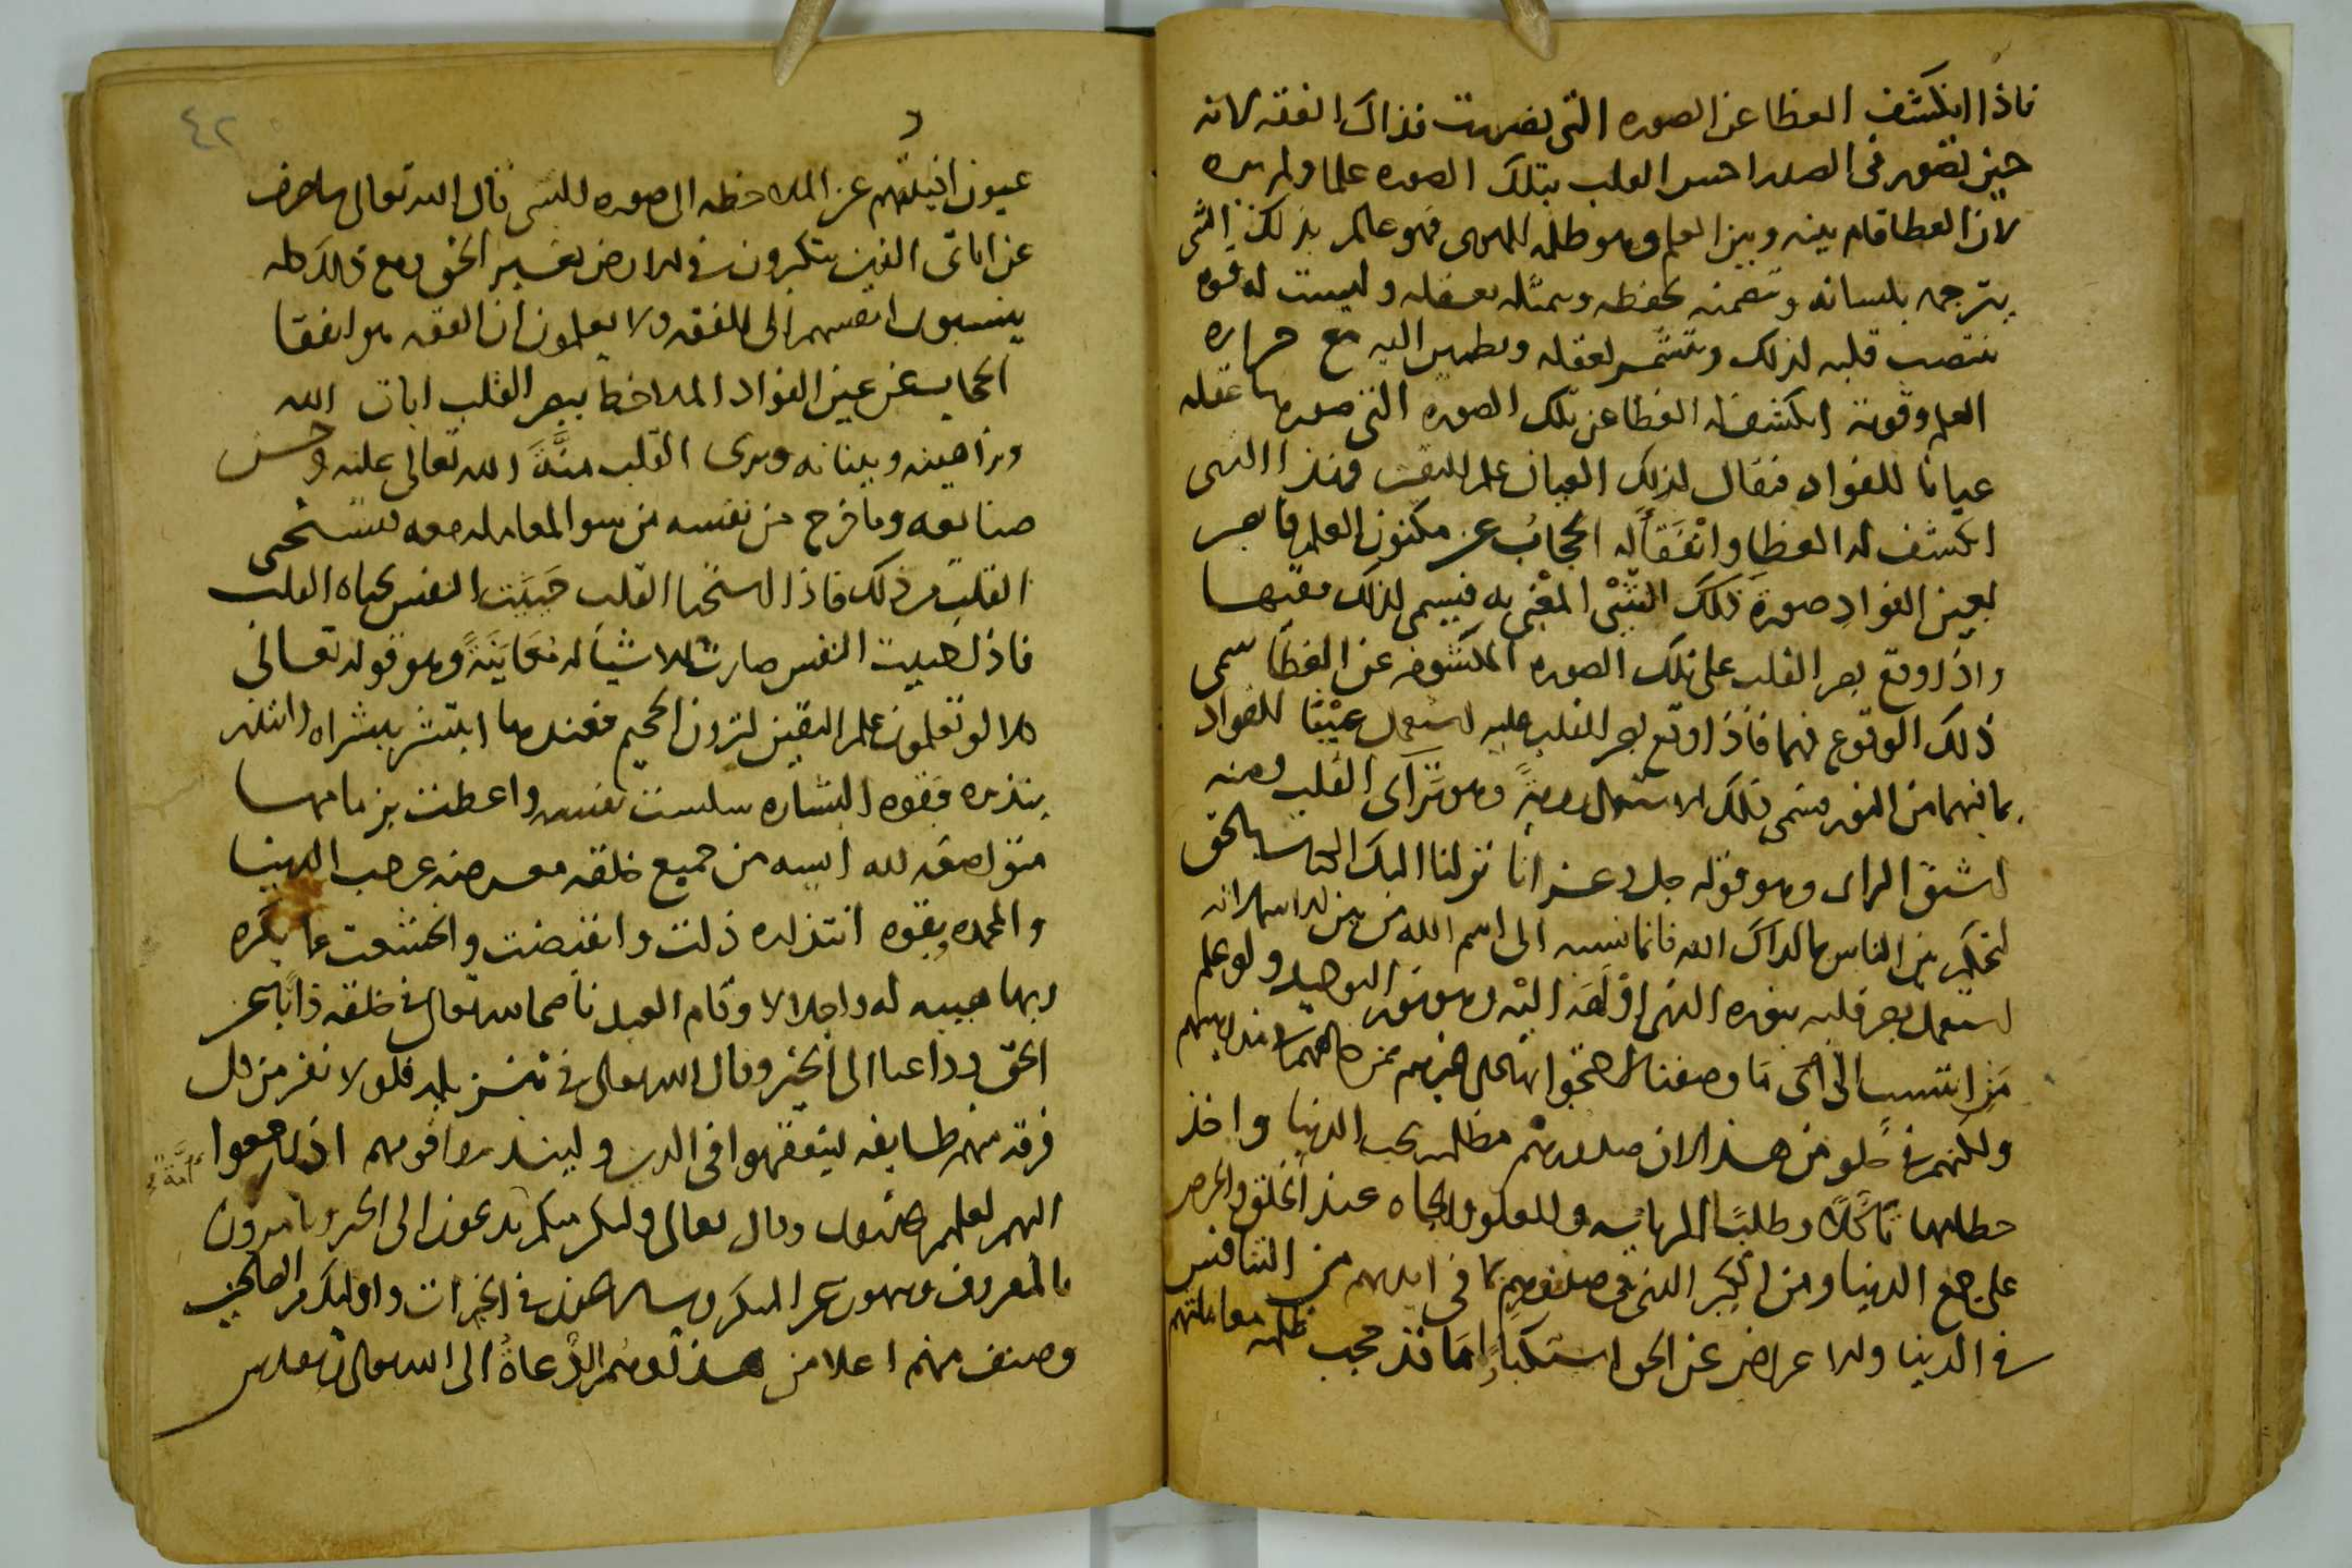 فاذا انكشف الغطا عن الصوره التى تصورت فذاك الفقه لانه
حين تصور فى الصدر احس القلب بتلك الصوره علما ولم يره
لان الغطا قام بينه وبين العلم وهو ظلمه الهوى فهو عالم بذلك الشى
يترجمه بلسانه وتضمنه بحفظه ويمثله بعقله وليست له قوه
ينتصب قلبه لذلك وتشمر لعقله ويطمين اليه مع حراره
العلم وقوته انكشف له الغطا عن تلك الصوره التى صورها عقله
عيانا للفواد فيقال لذلك العيان علم اليقين وهذا الشى
انكشف له الغطا وانْفَقَأَله الحجاب عن مكنون العلم فابصر
بعين الفوادِ صورة ذلك الشىْ المغبى به فيسمى لذلك فقيها
واذا وقع بصر القلب على تلك الصوره المكشوفه عن الغطا سمى
ذلك الوقوع فهما فاذا وقع بصر القلب عليه استعمل عينا للفواد
بما فيهما من النور فسمى ذلك الاستعمال رويةً وهو تراآى القلب ومنه
اشتق الراى وهو قوله جل وعز انا نزلنا اليك الكتاب بالحق
لتحكم بين الناس بما اراك الله فانما نسبه الى اسم الله من بين الاسما لانه
استعمل بصر قلبه بنوره الذى اوله اليه وهو نور التوحيد ولو علم
من انتسب الى اى ما وصفنا
ولكنهم فى خلو من هذا لان صدورهم مظلمه بحب الدنيا واخذ
حطامها تاكلا وطلبًا الرياسه والعلو والجاه عند الخلق والحرص
على جمع الدنيا ومن الكبر الذى فى صدورهم بما فى ايديهم من التنافس
فى الدنيا والاعراض عن الحق استكبارا ما قد حجب ظلمه معاملتهم
٤٢
عيون افيدتهم عن الملاحظه الى صوره الشى قال الله تعالى ساصرف
عن اياتى الذين يتكبرون فى الارض بغير الحق ومع ذلك كله
ينسبون انفسهم الى الفقه ولا يعلمون ان الفقه هو انفقا
الحجاب عن عين الفواد الملاحظ ببصر القلب ايات الله
وبراهينه وبيناته ويرى القلب منَّةَ الله تعالى عليه وحسن
صنايعه وما خرج من نفسه من سو المعامله معه فيستحى
القلب من ذلك فاذا استحيا القلب حَيِيَت النفس بحياه القلب
فاذا حييت النفس صارت الاشيا له مُعَايَنَةً وهو قوله تعالى
كلا لو تعلمون علم اليقين لترون الجحيم فعندها ابتشر ببشراه وانتذر
بنذره فبقوه البشاره سلست نفسه واعطت بزمامها
متواضعه لله ايسه من جميع خلقه معرضه عن حب الدنيا
والمحمده وبقوه انتذاره ذلت وانقبضت واخشعت عما يكره
ربها هيبه له واجلالا وقام العبد ناصحا لله تعالى فى خلقه ذابا عن
الحق وداعيا الى الخير وقال الله تعالى فى تنزيله فلولا نفر من كل
فرقه منهم طايفه ليتفقهوا فى الدين ولينذروا قومهم اذا رجعوا
اليهم لعلهم يحذرون وقال تعالى ولتكن منكم امة يدعون الى الخير ويامرون
بالمعروف وينهون عن المنكر ويسارعون فى الخيرات واوليك من الصالحين
وصنف منهم اعلا من هذا وهم الدُّعاةُ الى الله تعالى